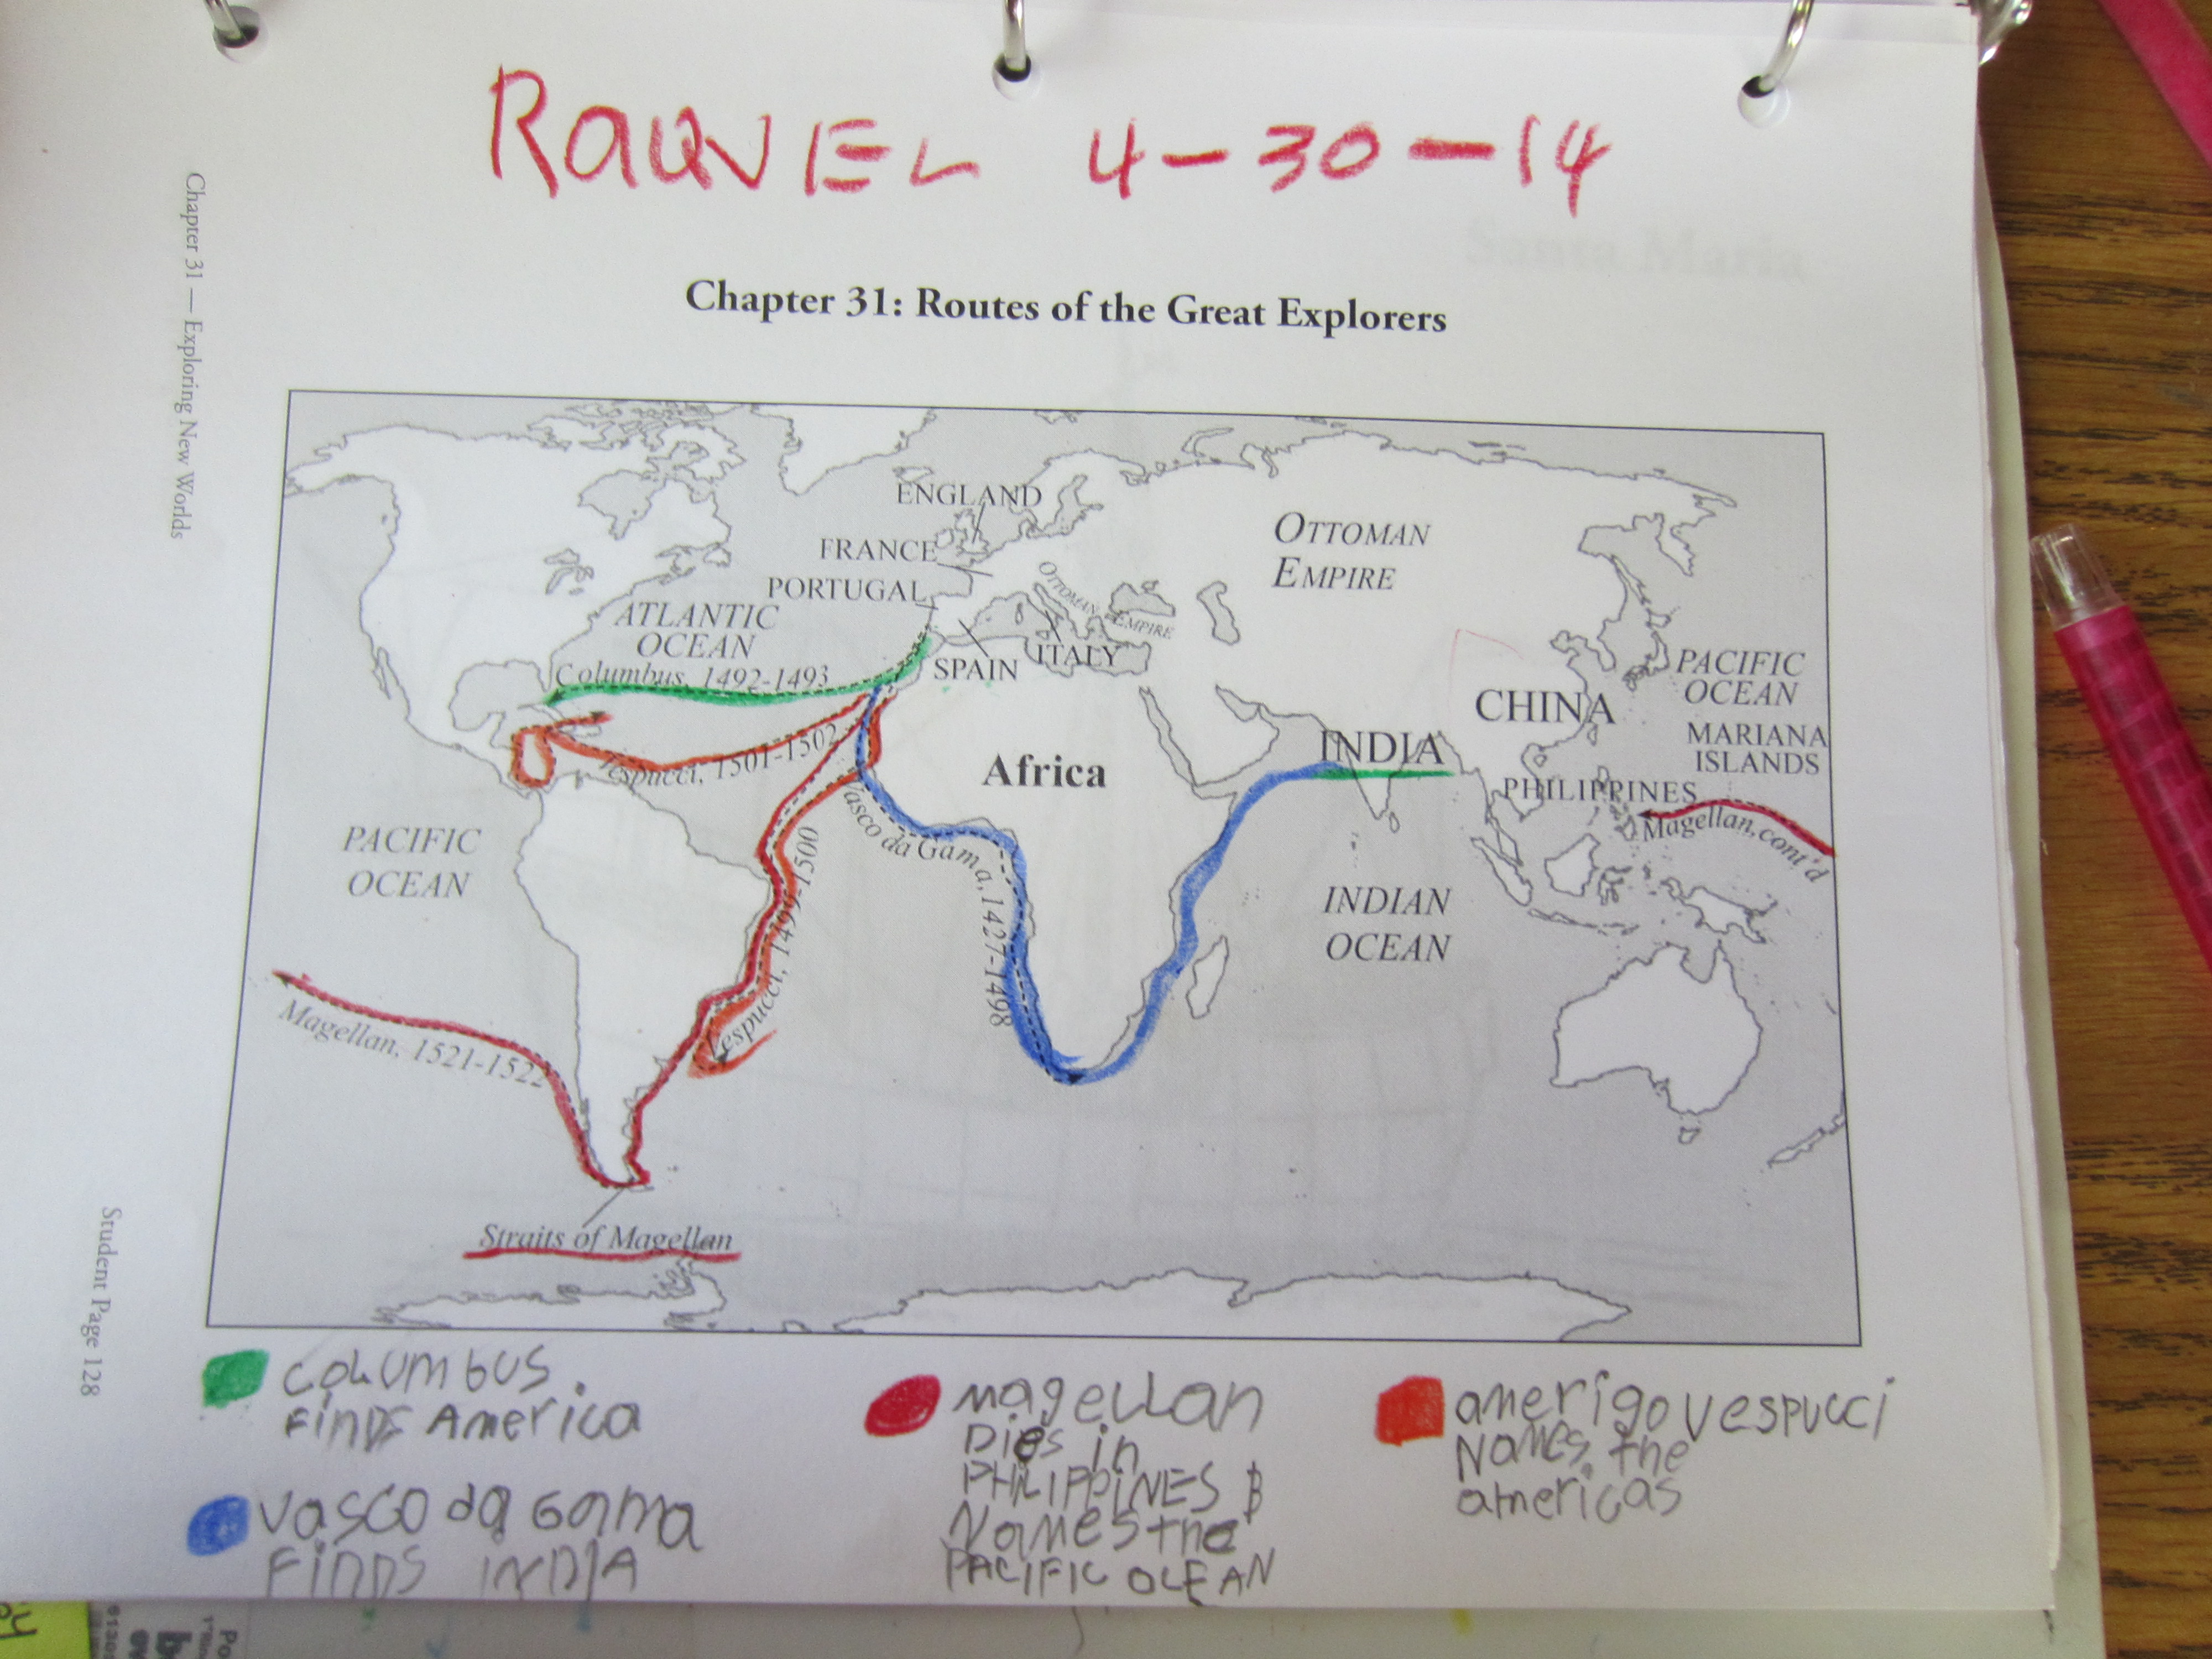 RAQUEL 4-30-14
Santa Maria
Chapter 31: Routes of the Great Explorers
Chapter 31 — Exploring New Worlds
ENGLAND
FRANCE
PORTUGAL
SPAIN
ITALY
OTTOMAN EMPIRE
OTTOMAN
EMPIRE
ATLANTIC
OCEAN
Columbus, 1492-1493
CHINA
PACIFIC
OCEAN
MARIANA
ISLANDS
INDIA
PHILIPPINES
Magellan, cont'd
Africa
Vespucci, 1501-1502
Vasco da Gama, 1427-1498
Vespucci, 1499-1500
PACIFIC
OCEAN
INDIAN
OCEAN
Magellan, 1521-1522
Straits of Magellan
Student Page 128
COLUMBUS
FINDS AMERICA
VASCO da GAMA
FINDS INDIA
magellan
Dies in
PHILIPPINES &
Names the
PACIFIC OCEAN
amerigo vespucci
Names the
americas